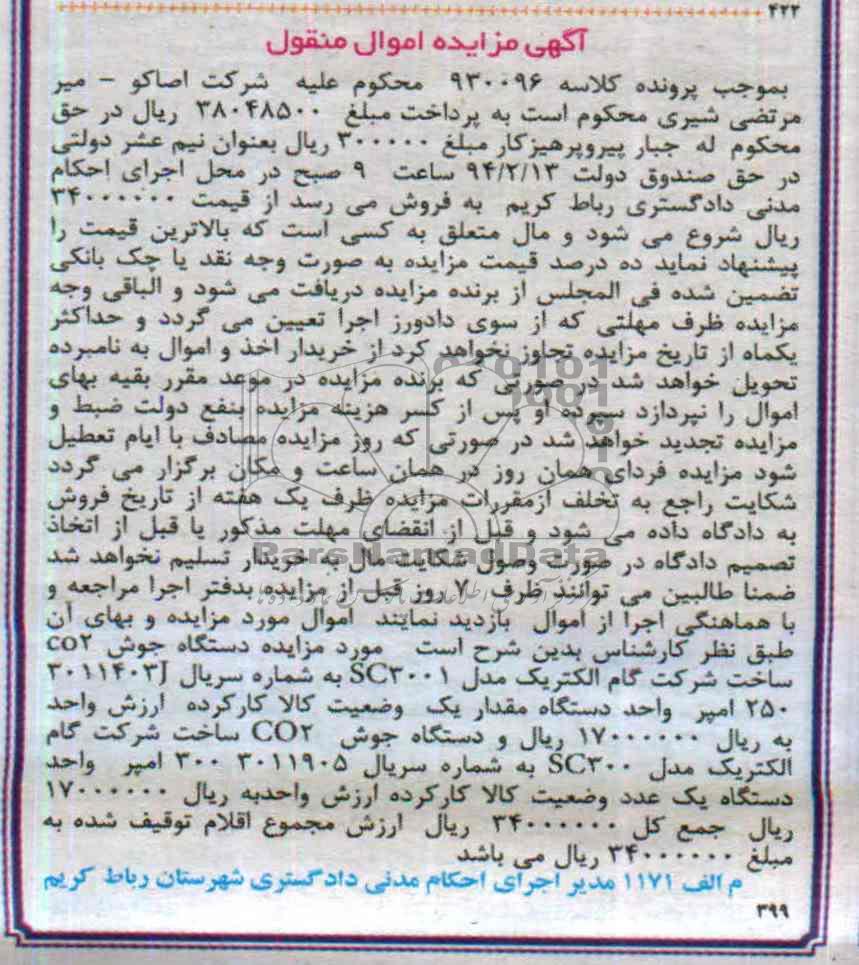 ۴۲۲
آگهی مزایده اموال منقول
بموجب پرونده کلاسه ۹۳۰۰۹۶ محکوم علیه شرکت اصاکو - میر
مرتضی شیری محکوم است به پرداخت مبلغ ۳۸۰۴۸۵۰۰ ریال در حق
محکوم له جبار پیروپرهیزکار مبلغ ۳۰۰۰۰۰ ریال بعنوان نیم عشر دولتی
در حق صندوق دولت ۹۴/۲/۱۳ ساعت ۹ صبح در محل اجرای احکام
مدنی دادگستری رباط کریم به فروش می رسد از قیمت ۳۴۰۰۰۰۰۰
ریال شروع می شود و مال متعلق به کسی است که بالاترین قیمت را
پیشنهاد نماید ده درصد قیمت مزایده به صورت وجه نقد یا چک بانکی
تضمین شده فی المجلس از برنده مزایده دریافت می شود و الباقی وجه
مزایده ظرف مهلتی که از سوی دادورز اجرا تعیین می گردد و حداکثر
یکماه از تاریخ مزایده تجاوز نخواهد کرد از خریدار اخذ و اموال به نامبرده
تحویل خواهد شد در صورتی که برنده مزایده در موعد مقرر بقیه بهای
اموال را نپردازد سپرده او پس از کسر هزینه مزایده بنفع دولت ضبط و
مزایده تجدید خواهد شد در صورتی که روز مزایده مصادف با ایام تعطیل
شود مزایده فردای همان روز در همان ساعت و مکان برگزار می گردد
شکایت راجع به تخلف ازمقررات مزایده ظرف یک هفته از تاریخ فروش
به دادگاه داده می شود و قبل از انقضای مهلت مذکور یا قبل از اتخاذ
ParsNamadData
تصمیم دادگاه در صورت وصول شکایت مال به خریدار تسلیم نخواهد شد
ضمنا طالبین می توانند ظرف ۷ روز قبل از مزایده بدفتر اجرا مراجعه و
با هماهنگی اجرا از اموال بازدید نمایند اموال مورد مزایده و بهای آن
طبق نظر کارشناس بدین شرح است مورد مزایده دستگاه جوش co۲
ساخت شرکت گام الکتریک مدل SC۳۰۰۱ به شماره سریال ۳۰۱۱۴۰۳J
۲۵۰ امپر واحد دستگاه مقدار یک وضعیت کالا کارکرده ارزش واحد
به ریال ۱۷۰۰۰۰۰۰ ریال و دستگاه جوش CO۲ ساخت شرکت گام
الکتریک مدل SC۳۰۰ به شماره سریال ۳۰۱۱۹۰۵ ۳۰۰ امپر واحد
دستگاه یک عدد وضعیت کالا کارکرده ارزش واحدبه ریال ۱۷۰۰۰۰۰۰
ریال جمع کل ۳۴۰۰۰۰۰۰ ریال ارزش مجموع اقلام توقیف شده به
مبلغ ۳۴۰۰۰۰۰۰ ریال می باشد
م الف ۱۱۷۱ مدیر اجرای احکام مدنی دادگستری شهرستان رباط کریم
۳۹۹